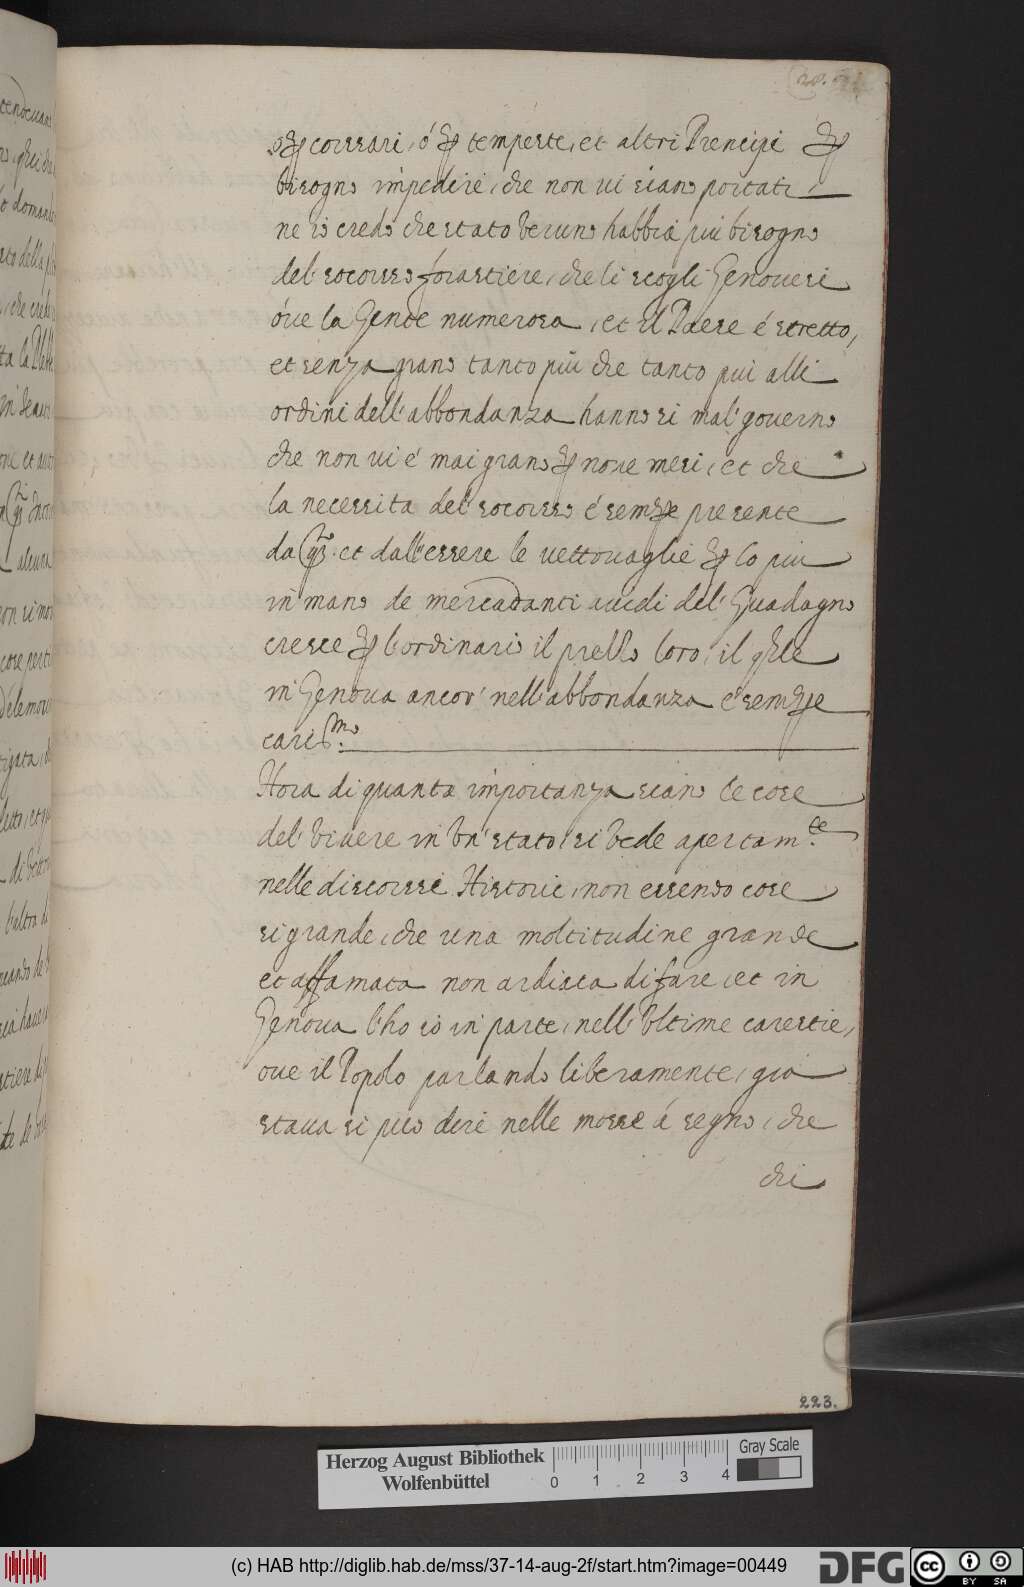 o p corsari, ó p tempeste, et altri Prencipi p
bisogno impedire, che non vi siano portati
ne io credo che stato veruno habbia più bisogno
del' socorso forastiere, che li scogli Genovesi
óve la Gente numerosa, et il Paese é stretto,
et senza grano tanto più che tanto più alli
ordini dell'abbondanza hanno si mal' governo
che non vi é mai grano p nove mesi, et che
la necessita del' socorso é sempre presente
da et dall'essere le vettovaglie p lo più
in mano de mercadanti avidi del' Guadagno
cresce p l'ordinario il prezzo loro, il qle
in Genova ancor' nell'abbondanza é sempre
cariss.mo
Hora di quanta importanza siano le cose
del' vivere in un' stato, si vede apertam.te
nelle discorse Historie, non essendo cose
si grande, che una moltitudine grande
et affamata non ardisca di fare, et in
Genova l'ho io in parte, nell'Ultime carestie,
ove il Popolo parlando liberamente, già
stava si può dire nelle mosse á segno, che
chi
223.
Herzog August Bibliothek
Wolfenbüttel
0 1 2 3 4
Gray Scale
(c) HAB http://diglib.hab.de/mss/37-14-aug-2f/start.htm?image=00449
DFG
CC BY SA